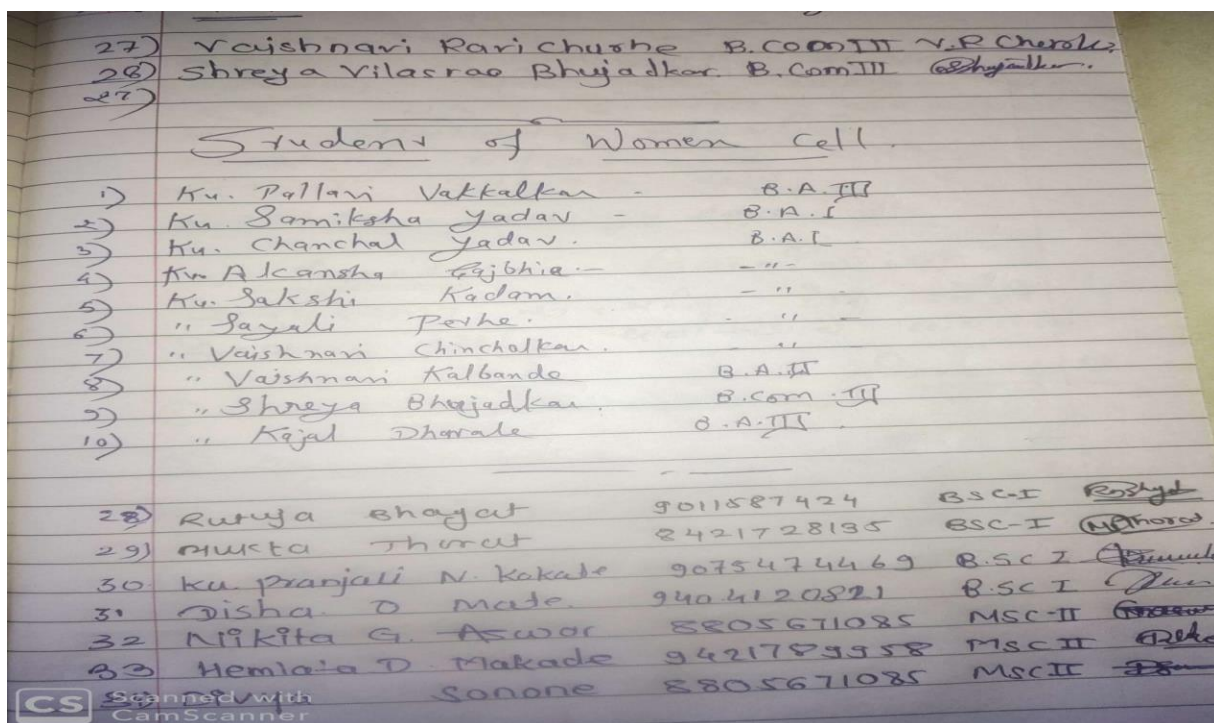 27) Vaishnavi Ravi Chyrhe B.Com III V.R Cherole
28) Shreya Vilasrao Bhujadkar. B.Com III Bhujadkar.
27)
Student of Women Cell.
1) Ku. Pallavi Vakkalkar - B.A.III
2) Ku. Samiksha Yadav - B.A.I
3) Ku. Chanchal Yadav. B.A.I
4) Ku Akansha Gajbhia.- -"-
5) Ku. Sakshi Kadam. -"-
6) " Sayali Pethe. " -
7) " Vaishnavi Chincholkar. "
8) " Vaishnavi Kalbande B.A.II
9) " Shreya Bhujadkar. B.Com.III
10) " Kajal Dharale B.A.III.
28) Rutuja Bhagat 9011587424 BSC-I
29) Mukta Thorat 8421728135 BSC-I MThorat
30. Ku. Pranjali N. Kakade 9075474469 B.SC I
31 Disha D Mate. 9404120821 B.SC I
32 Nikita G. Aswar 8805671085 MSC-II
33 Hemlata D. Makade 9421789958 MSC II
Sonone 8805671085 MSC II
CS Scanned with
CamScanner